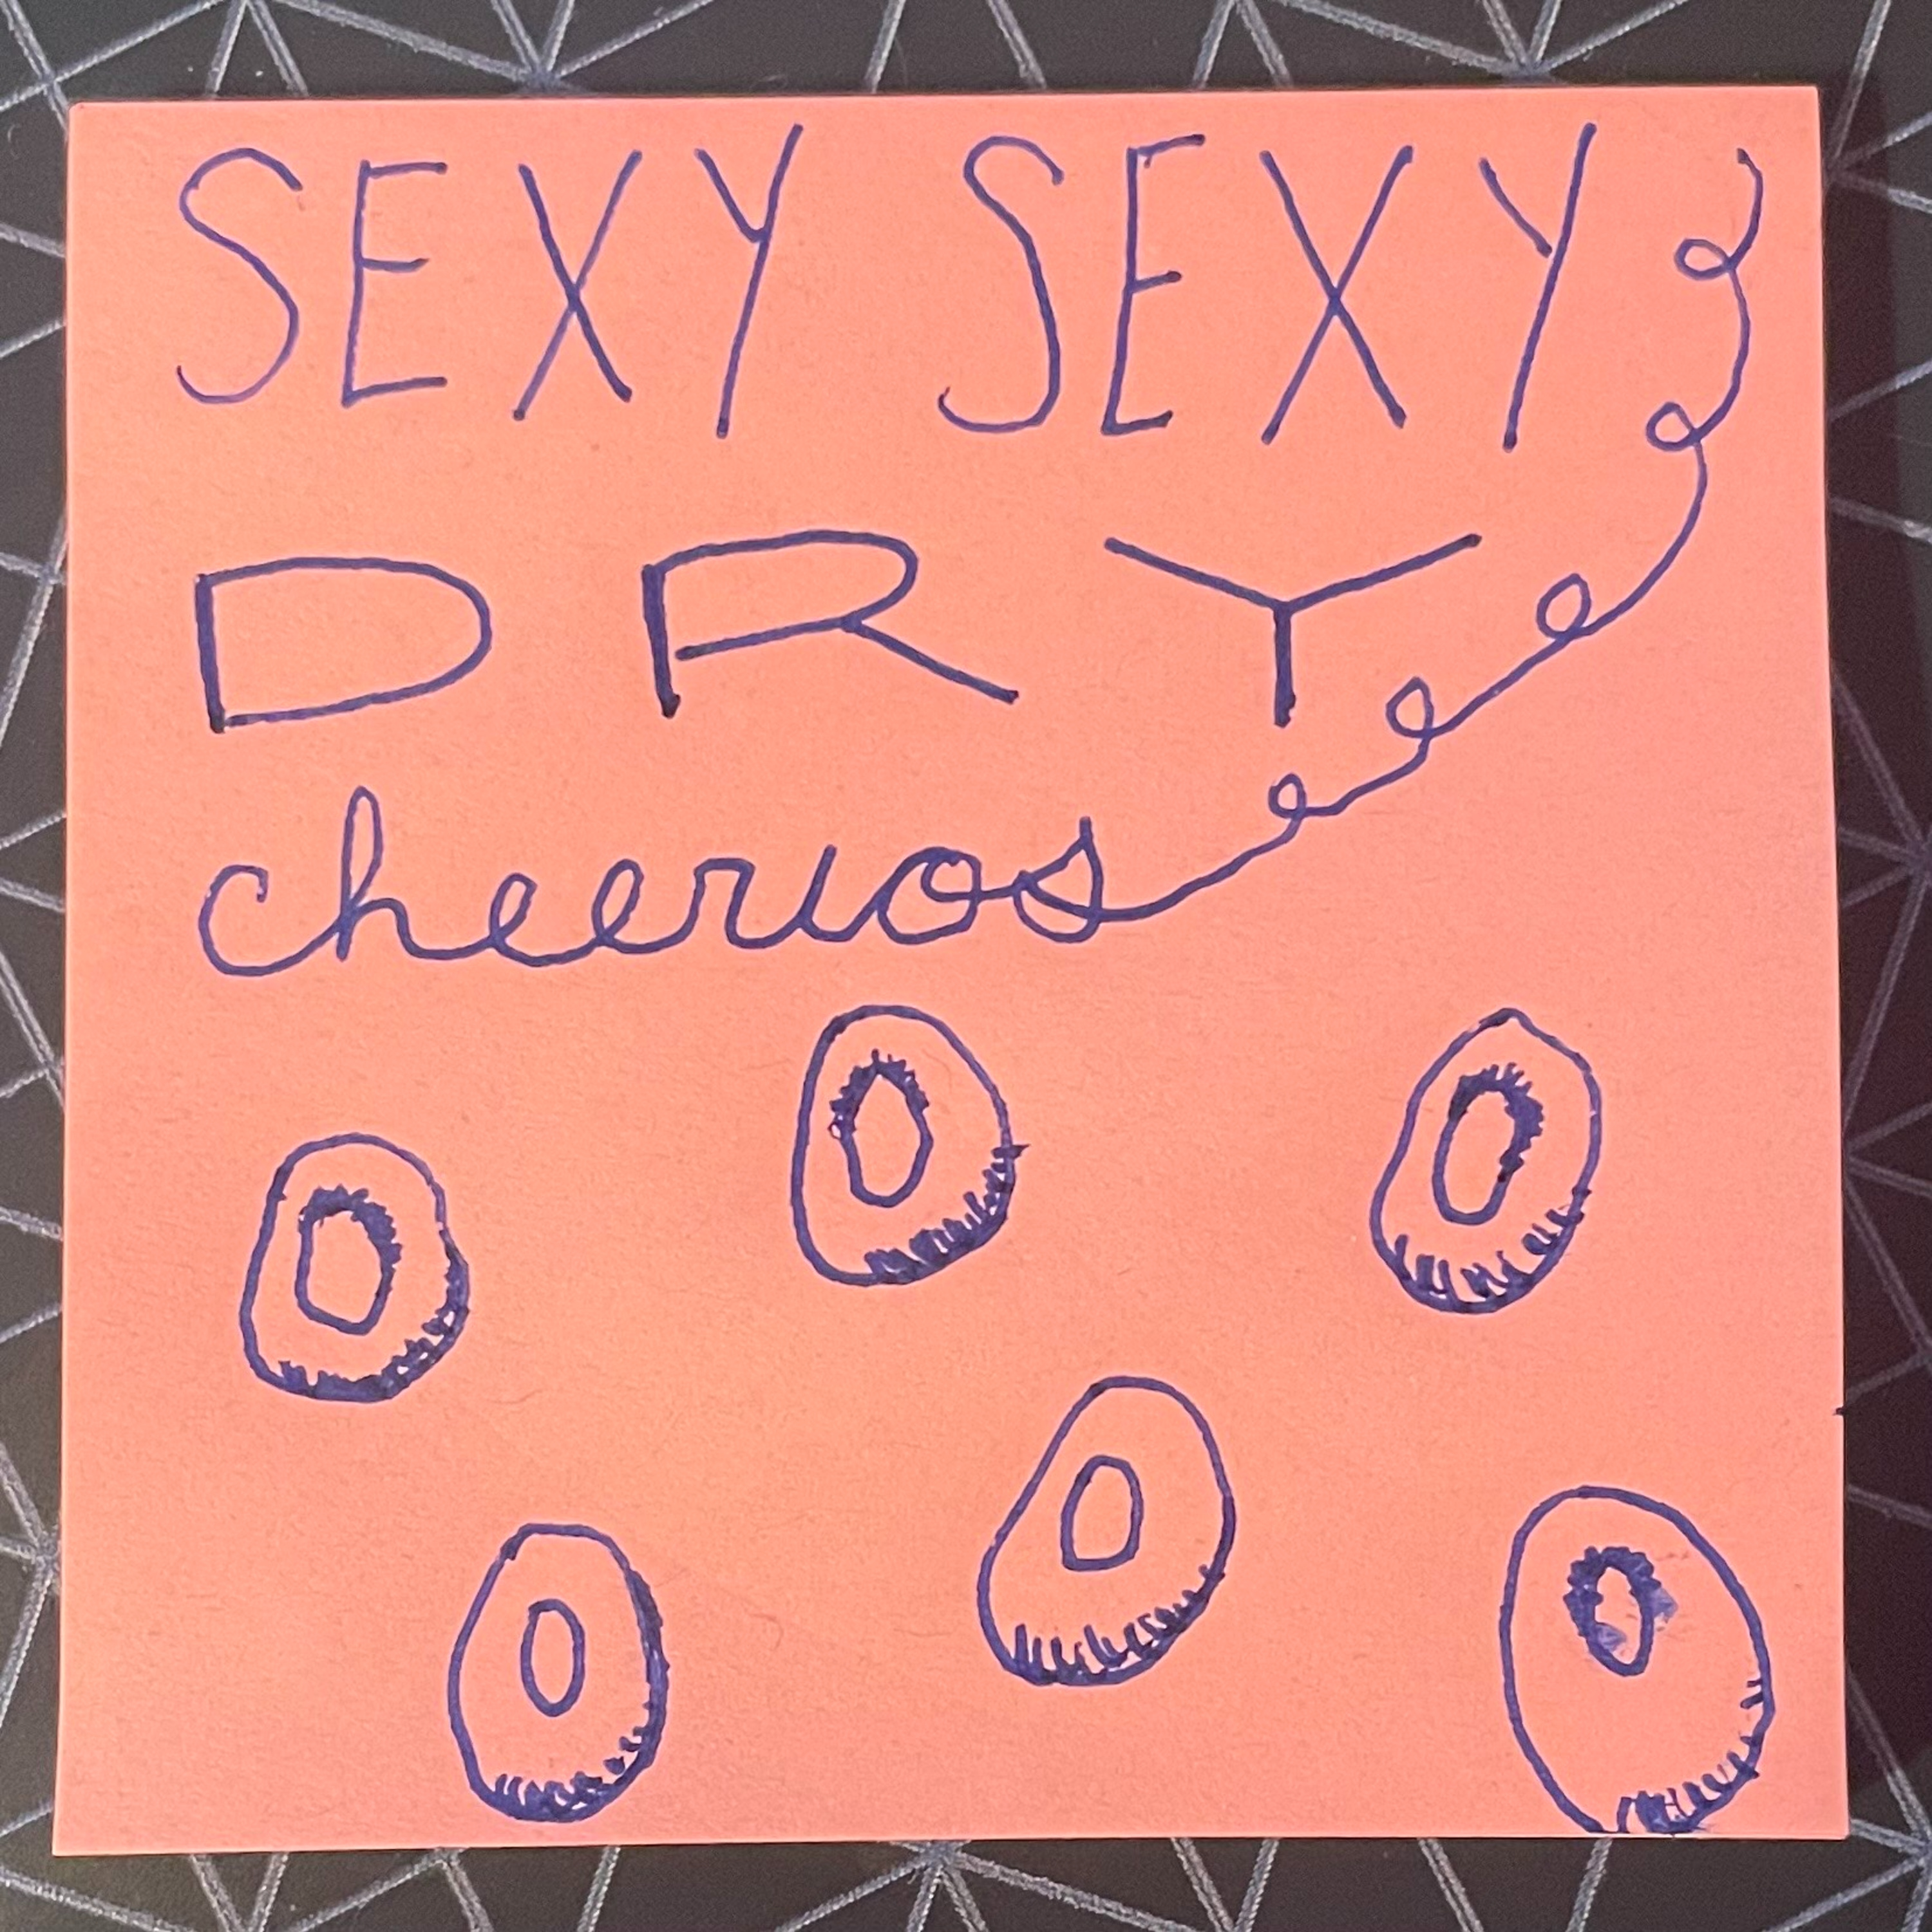 SEXY SEXY
DRY
cheerios